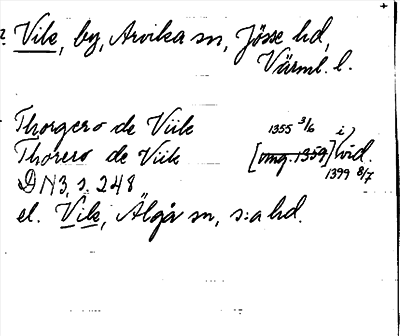 ? Vik, by, Arvika sn, Jösse hd,
Värml. l.
Thorgero de Viik 1355 3/6 i
Thorero de Viik [omg. 1359] vid.
DN3, s. 248 1399 8/7
el. Vik, Älgå sn, s:a hd.